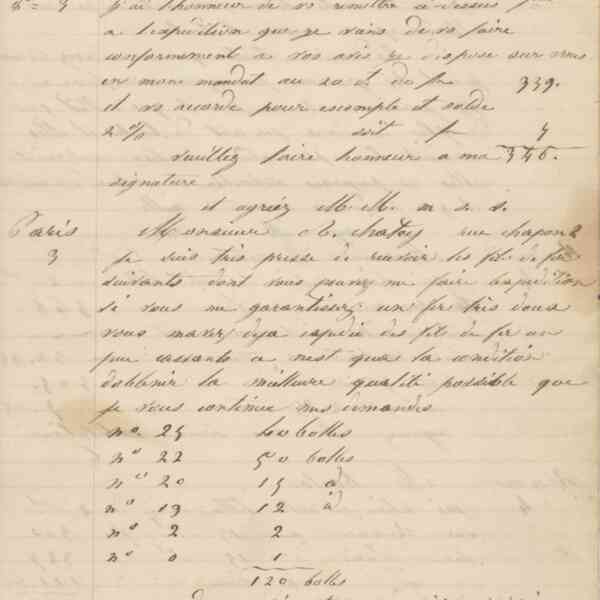 j'ai l'honneur de vs remettre ci dessus fre
a l'expedition que je viens de vs faire
conformement a vos avis je dispose sur vous
en mon mandat au 20 ct de fr 339.
et vs accorde pour escompte et solde
2 % soit fr 7
veuillez faire honneur a ma 346.
signature
et agréez M. M. m. s. s.
Paris Monsieur A. Chatoy rue chapon 2
3 je suis tres pressé de recevoir les fils de fer
suivants dont vous pouvez me faire l'expedition
si vous me garantissez un fer tres doux
vous m'avez deja expedié des fils de fer un
peu cassants ce n'est que a la condition
d'obtenir la meilleure qualité possible que
je vous continue mes demandes
no 25 bottes
no 22 50 bottes
no 20 15 d
no 19 12 d
no 2 2
no 0 1
120 bottes